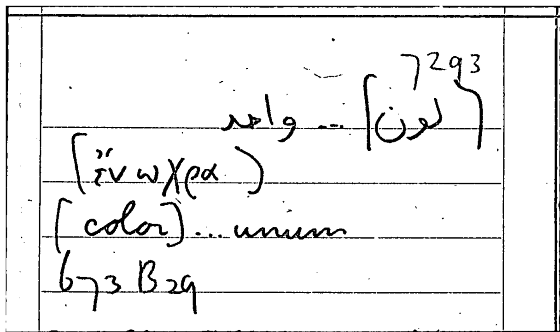 7293
[لون] ... واحد
[ἓν ωχρα)
[color]...unum
673 B29